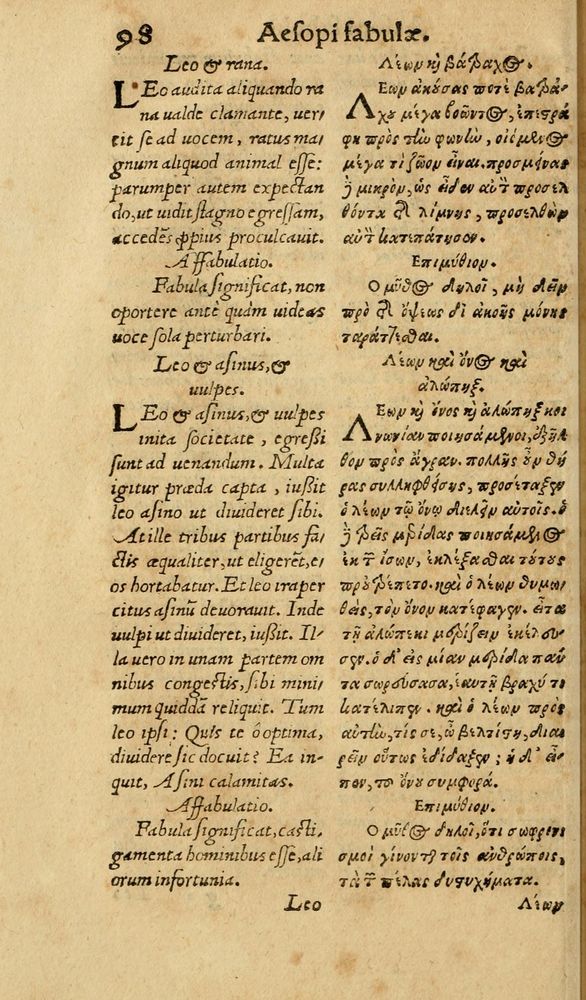 98 Aeſopi fabulæ.
Leo & rana.
LEo audita aliquando ra
na ualde clamante, uer/
tit ſe ad uocem, ratus ma/
gnum aliquod animal eſſe:
parumper autem expectan
do, ut uidit ſtagno egreſſam,
accedēs ꝓpius proculcauit.
Affabulatio.
Fabula ſignificat, non
oportere antè quàm uideas
uoce ſola perturbari.
Leo & aſinus, &
uulpes.
LEo & aſinus, & uulpes
inita ſocietate, egreſſi
ſunt ad uenandum. Multa
igitur præda capta, iuſsit
leo aſino ut diuideret ſibi.
At ille tribus partibus fa/
ctis æqualiter, ut eligerēt, e/
os hortabatur. Et leo ira per
citus aſinū deuorauit. Inde
uulpi ut diuideret, iuſsit. Il/
la uero in unam partem om
nibus congeſtis, ſibi mini/
mum quiddā reliquit. Tum
leo ipſi: Quis te ô optima,
diuidere ſic docuit? Ea in-
quit, Aſini calamitas.
Affabulatio.
Fabula ſignificat, caſti-
gamenta hominibus eſſe, ali
orum infortunia.
Leo
Λέων κὶ βάτραχος.
ΛΕων ἀκούσας ποτὲ βατρά-
χου μέγα βοῶντος, ἐπεστρά
φη πρὸς τὴν φωνὴν, οἰόμενος
μέγα τι ζῶον εἶναι. προσμείνας
ἢ μικρὸν, ὡς εἶδεν αὐτὸν προσελ
θόντα τῆς λίμνης, προσελθὼν
αὐτὸν κατεπάτησεν.
Επιμύθιον.
Ο μῦθος δηλοῖ, μὴ δεῖν
πρὸ τῆς ὄψεως δι' ἀκοῆς μόνης
ταράττεσθαι.
Λέων καὶ ὄνος καὶ
ἀλώπηξ.
ΛΕων κὶ ὄνος κὶ ἀλώπηξ κοι
νωνίαν ποιησάμενοι, ἐξῆλ
θον πρὸς ἄγραν. πολλῆς οὖν θή
ρας συλληφθείσης, προσέταξεν
ὁ λέων τῷ ὄνῳ διελεῖν αὐτοῖς. ὁ
ἢ τρεῖς μερίδας ποιησάμενος
ἐκ τῶν ἴσων, ἐκλέξασθαι τούτους
προὐτρέπετο. καὶ ὁ λέων θυμω
θεὶς, τὸν ὄνον κατέφαγεν. εἶτα
τῇ ἀλώπεκι μερίζειν ἐκέλευ-
σεν. ὁ δ' εἰς μίαν μερίδα πάν
τα σωρεύσασα, ἑαυτῇ βραχύ τι
κατέλιπεν. καὶ ὁ λέων πρὸς
αὐτὴν, τίς σε, ὦ βελτίστη, διαι
ρεῖν οὕτως ἐδίδαξεν; ἡ δ' εἶ-
πεν, τοῦ ὄνου συμφορά.
Επιμύθιον.
Ο μῦθος δηλοῖ, ὅτι σωφρονι
σμοὶ γίνονται τοῖς ἀνθρώποις,
τὰ τῶν πέλας δυστυχήματα.
Λέων